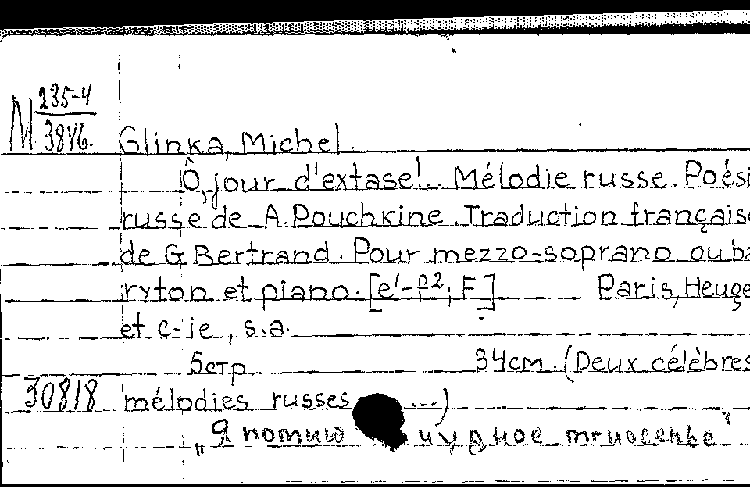 M 235-4
3876.
Glinka, Michel.
Ô, jour d'extase!.. Mélodie russe. Poési
russe de A. Pouchkine. Traduction français
de G. Bertrand. Pour mezzo-soprano ou ba
ryton et piano. [e¹-f², F] Paris, Heuge
et c-ie, s.a.
5 стр. 34 см. (Deux célèbres
30818 mélodies russes ...)
„Я помню чудное мгновенье"